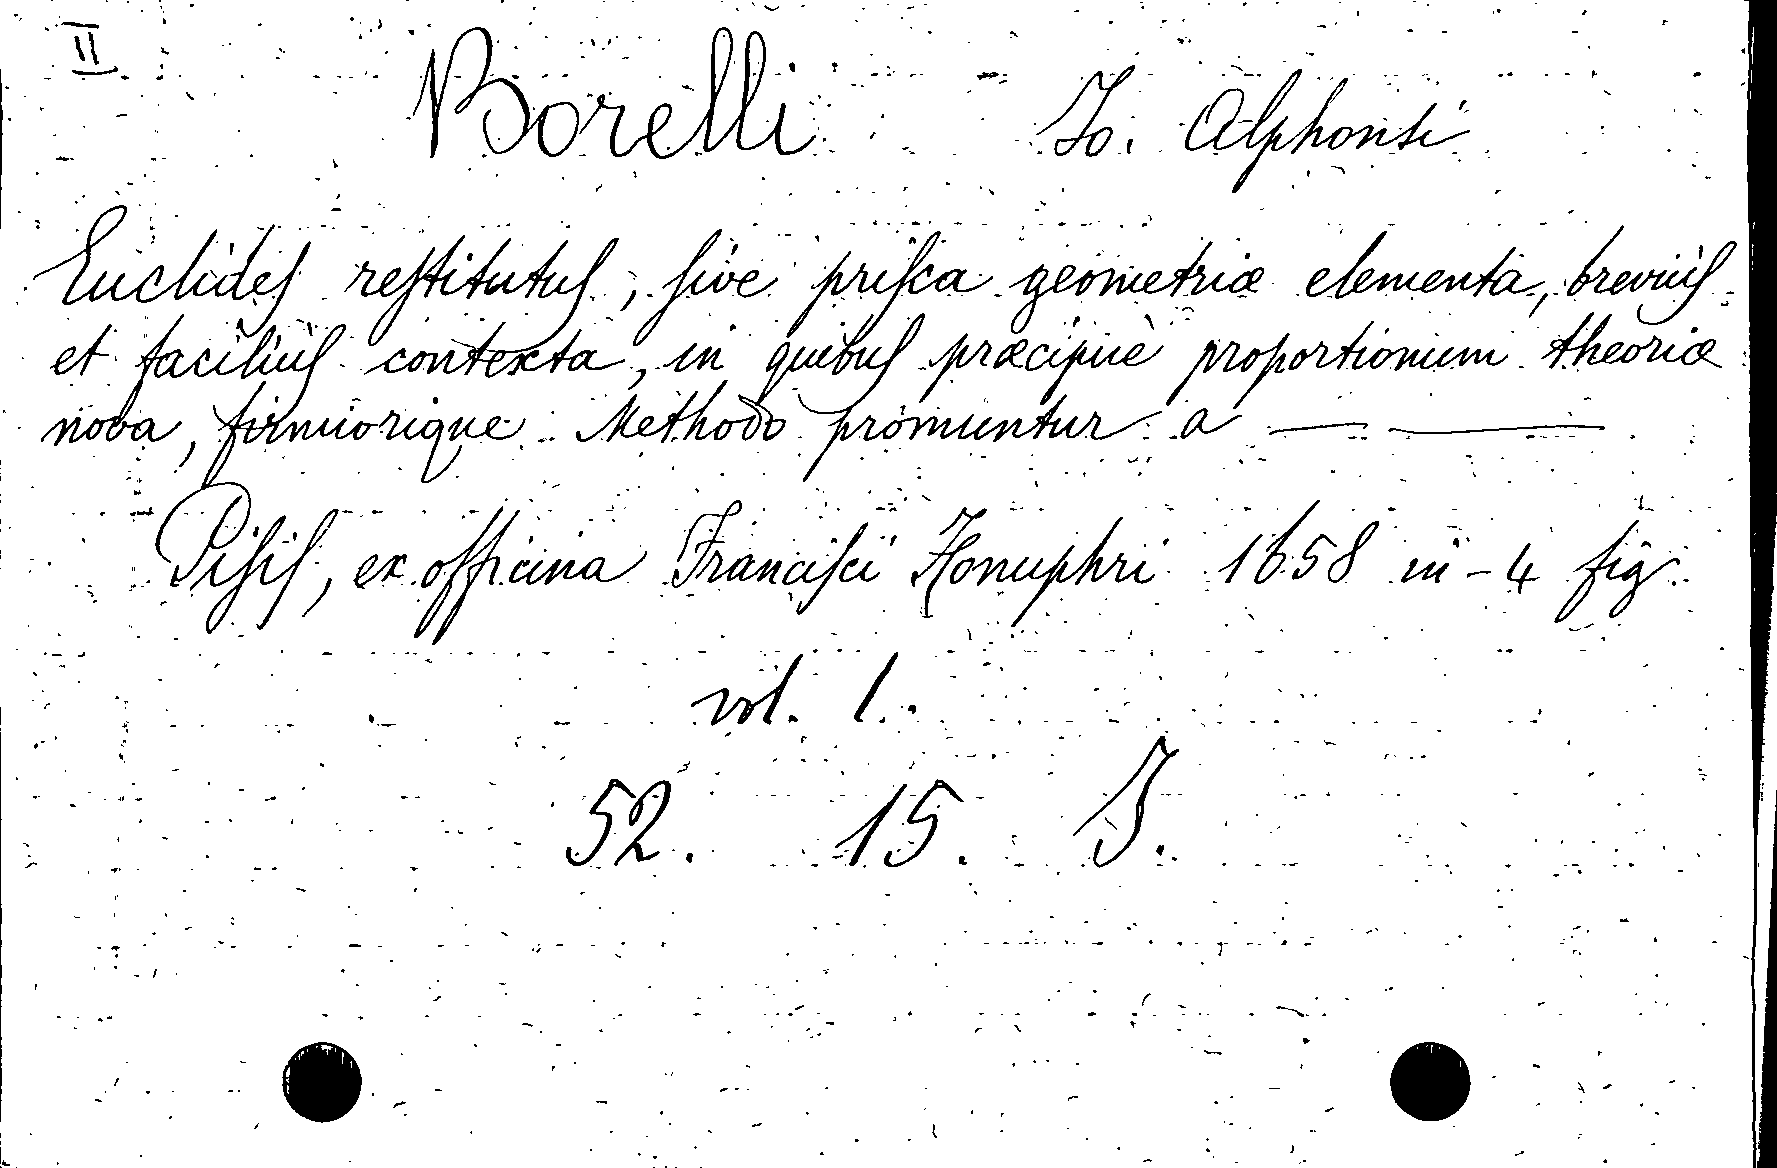 II
Borelli Jo. Alphonsi
Euclideſ reſtitutuſ, ſive priſca geometriæ elementa, breviuſ
et faciliuſ contexta, in quibuſ præcipuè proportionum theoriæ
nova, firmiorique Methodo promuntur a — ——
Piſiſ, ex officina Franciſci Honuphri 1658 in-4 fig.
vol. 1.
52. 15. J.